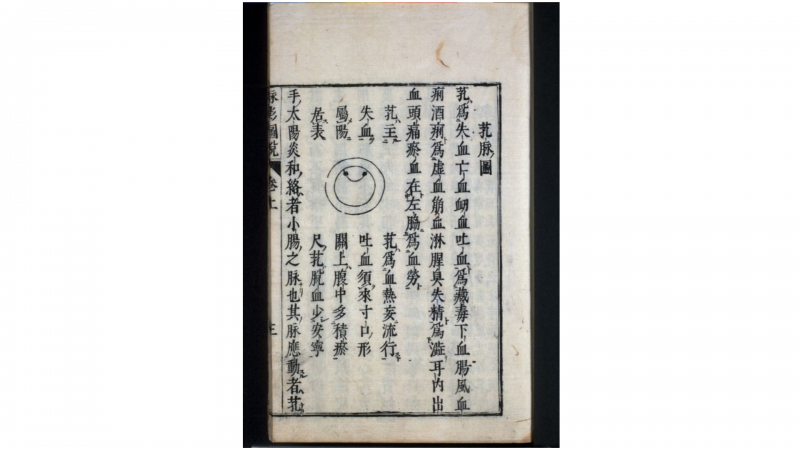 芤脉圖
芤爲失血亡血衂血吐血爲藏毒下血腸風血
痢酒痢爲虛血崩血淋腥臭失精爲澁耳內出
血頭痛瘀血在左脇爲血勞
芤主
失血
屬陽
居表
芤爲血熱妄流行
吐血須來寸口形
關上腹中多積瘀
尺芤脫血少安寧
手太陽炎和絡者小腸之脉也其脉應動者芤
脉影圖說 卷上